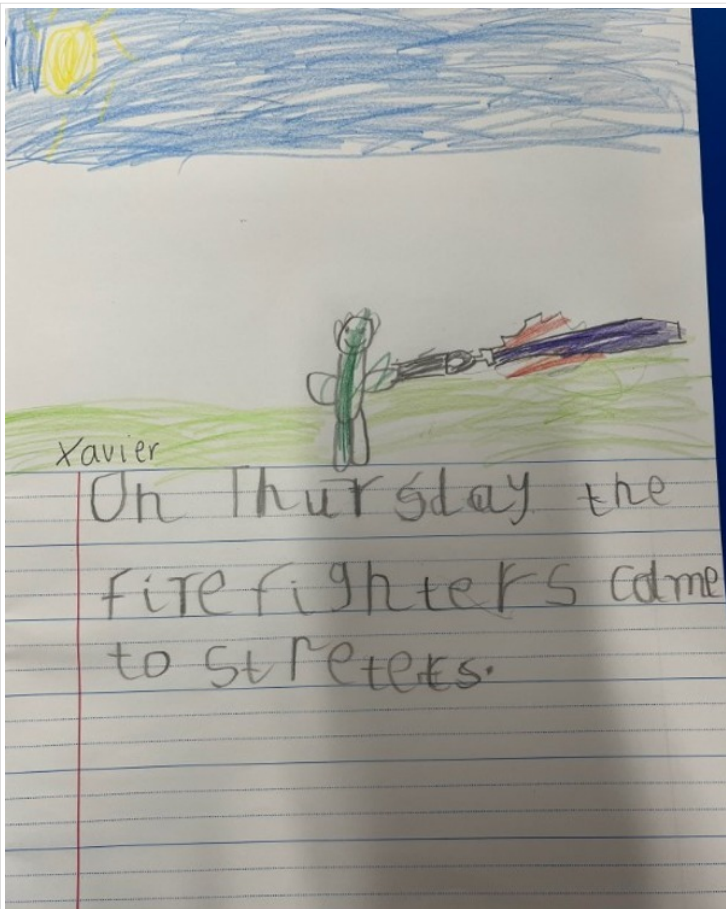 Xavier
On Thursday the
firefighters came
to Streters.